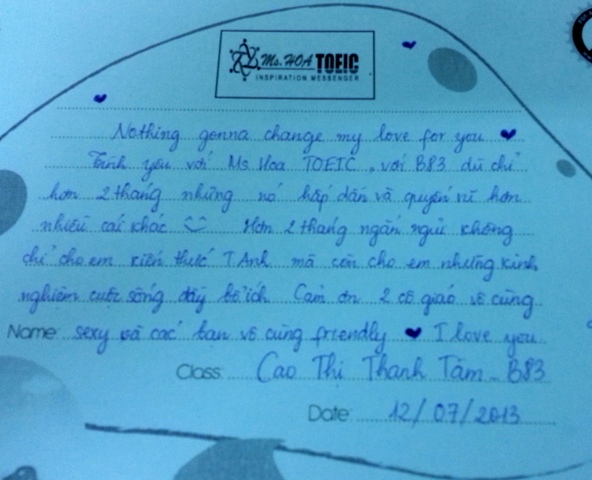 Ms. HOA TOEIC
INSPIRATION MESSENGER
Nothing gonna change my love for you ♥
Tình yêu với Ms Hoa TOEIC, với B83 dù chỉ
hơn 2 tháng nhưng nó hấp dẫn và quyến rũ hơn
nhiều cái khác Hơn 2 tháng ngắn ngủi không
chỉ cho em kiến thức T.Anh mà còn cho em những kinh
nghiệm cuộc sống đầy bổ ích. Cảm ơn 2 cô giáo vô cùng
Name: sexy và các bạn vô cùng friendly ♥ I love you
Class: Cao Thị Thanh Tâm - B83
Date: 12/07/2013